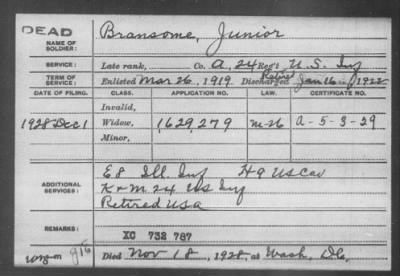 DEAD
NAME OF SOLDIER: Bransome, Junior
SERVICE: Late rank, Co. A, 24 Reg't U.S. Inf
TERM OF SERVICE: Enlisted Mar 26, 1919. Discharged Retired Jan 16 1922
DATE OF FILING. CLASS. APPLICATION NO. LAW. CERTIFICATE NO.
Invalid,
1928 Dec 1 Widow, 1,629,279 M-26 A-5-3-29
Minor,
ADDITIONAL SERVICES: E 8 Ill. Inf H 9 US Cav
K & M. 24 US Inf
Retired USA
REMARKS:
XC 732 787
916 Died Nov 18, 1928, at Wash, DC,